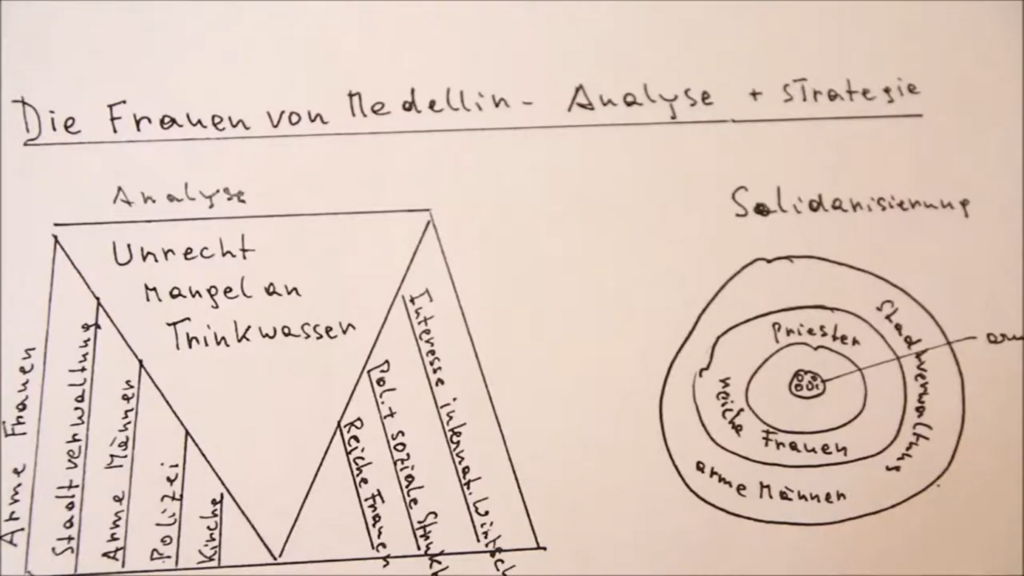 Die Frauen von Medellin - Analyse + Strategie
Analyse
Unrecht
Mangel an
Trinkwasser
Arme Frauen
Stadtverwaltung
Arme Männer
Polizei
Kirche
Reiche Frauen
Pol. + soziale Strukt
Interesse internat. Wirtsch
Solidarisierung
Priester
reiche Frauen
Stadtverwaltung
arme Männer